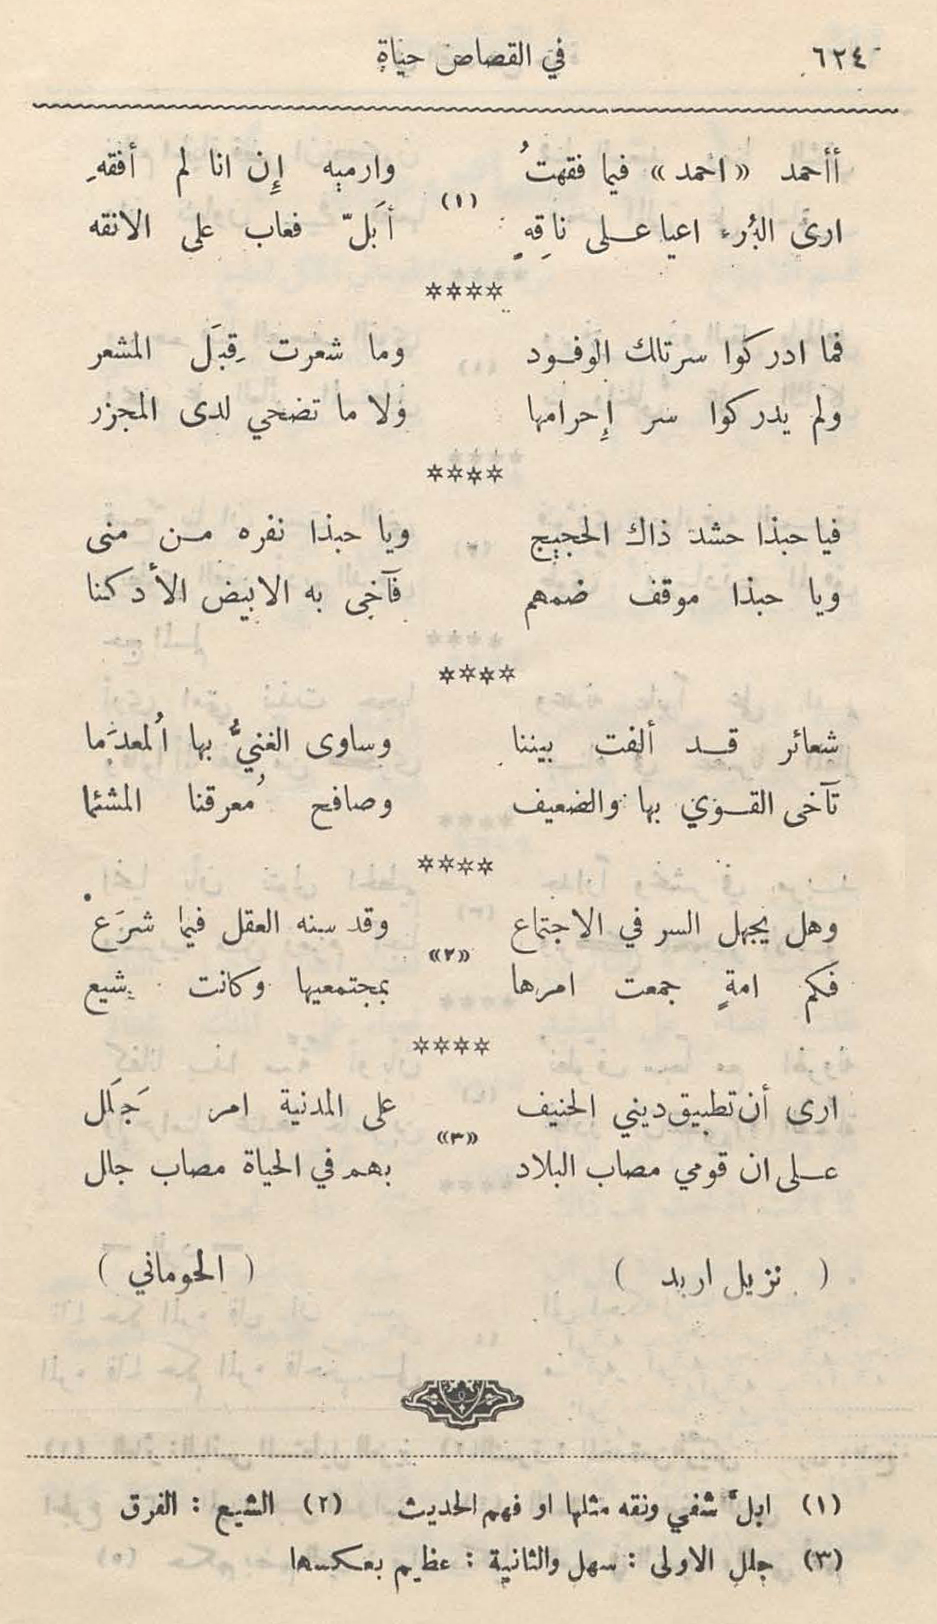 ٦٢٤ في القصاص حياة
أأحمد «احمد» فيما فقهتُ وارميه إِن انا لم أفقهِ
(١)
ارى البُرء اعيا على ناقِهٍ أَبَلّ فعاب على الانقه
****
فما ادركوا سر تلك الوفود وما شعرت قِبَل المشعر
ولم يدركوا سر إحرامها ولا ما تضحي لدى المجزر
****
فيا حبذا حشد ذاك الحجيج ويا حبذا نفره من منى
ويا حبذا موقف ضمهم فآخى به الابيض الأدكنا
****
شعائر قد ألفت بيننا وساوى الغنيُّ بها المُعدَما
تآخى القوي بها والضعيف وصافح مُعرقنا المشئما
****
وهل يجهل السر في الاجتماع وقد سنه العقل فيما شرَعْ
«٢»
فكم امةٍ جمعت امرها بمجتمعيها وكانت شيع
****
ارى أن تطبيق ديني الحنيف على المدنية امر جَلَل
«٣»
على ان قومي مصاب البلاد بهم في الحياة مصاب جلل
( نزيل اربد ) ( الحوماني )
(١) ابلَّ شفي ونقه مثلها او فهم الحديث (٢) الشيع : الفرق
(٣) جلل الاولى : سهل والثانية : عظيم بعكسها